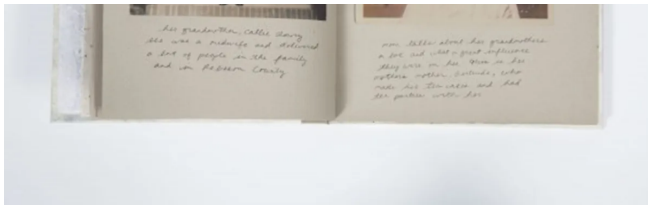 her grandmother, Callie
She was a midwife and delivered
a lot of people in the family
and in Robeson County
mom talks about her grandmothers
a lot and what a great influence
they were on her. This is her
mothers mother, Gertrude, who
made her tea cakes and had
tea parties with her